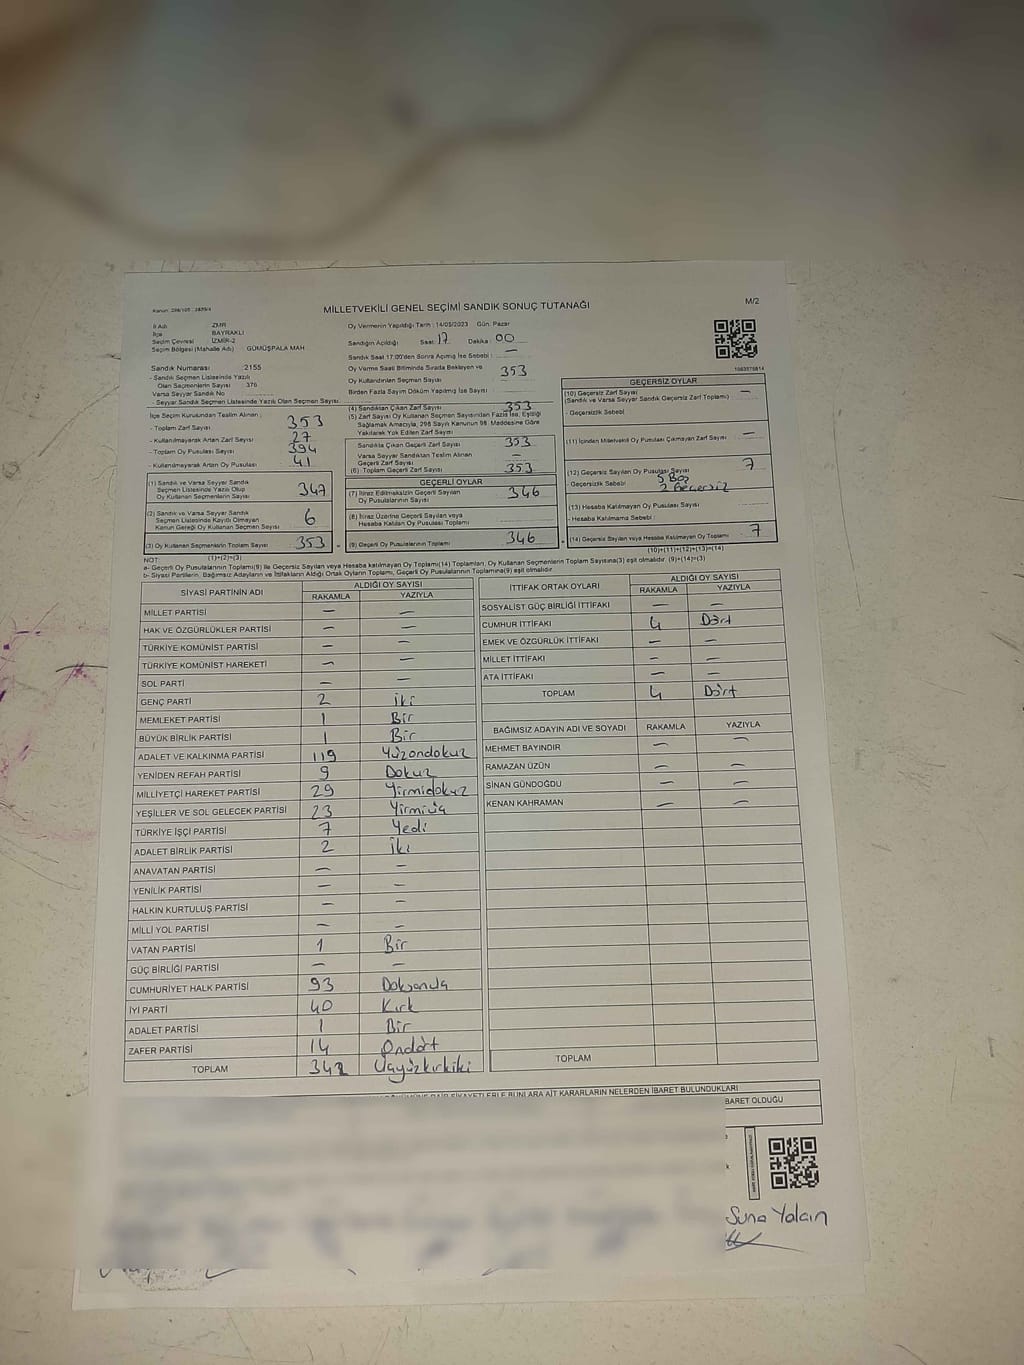 Kanun: 298/105 - 2839/4
MİLLETVEKİLİ GENEL SEÇİMİ SANDIK SONUÇ TUTANAĞI
M/2
İl Adı ZMR
İlçe BAYRAKLI
Seçim Çevresi İZMİR-2
Seçim Bölgesi (Mahalle Adı) GÜMÜŞPALA MAH
Sandık Numarası 2155
- Sandık Seçmen Listesinde Yazılı
Olan Seçmenlerin Sayısı 376
Varsa Seyyar Sandık No
- Seyyar Sandık Seçmen Listesinde Yazılı Olan Seçmen Sayısı
Oy Vermenin Yapıldığı Tarih : 14/05/2023 Gün: Pazar
Sandığın Açıldığı Saat 17 Dakika : 00
Sandık Saat 17:00'den Sonra Açılmış İse Sebebi : —
Oy Verme Saati Bitiminde Sırada Bekleyen ve
Oy Kullandırılan Seçmen Sayısı 353
Birden Fazla Sayım Döküm Yapılmış İse Sayısı
İlçe Seçim Kurulundan Teslim Alınan ;
- Toplam Zarf Sayısı 353
- Kullanılmayarak Artan Zarf Sayısı 27
- Toplam Oy Pusulası Sayısı 394
- Kullanılmayarak Artan Oy Pusulası 41
(1) Sandık ve Varsa Seyyar Sandık
Seçmen Listesinde Yazılı Olup
Oy Kullanan Seçmenlerin Sayısı 347
(2) Sandık ve Varsa Seyyar Sandık
Seçmen Listesinde Kayıtlı Olmayan
Kanun Gereği Oy Kullanan Seçmen Sayısı 6
(3) Oy Kullanan Seçmenlerin Toplam Sayısı 353
(1)+(2)=(3)
(4) Sandıktan Çıkan Zarf Sayısı 353
(5) Zarf Sayısı Oy Kullanan Seçmen Sayısından Fazla İse, Eşitliği
Sağlamak Amacıyla, 298 Sayılı Kanunun 98. Maddesine Göre
Yakılarak Yok Edilen Zarf Sayısı
Sandıkta Çıkan Geçerli Zarf Sayısı 353
Varsa Seyyar Sandıktan Teslim Alınan
Geçerli Zarf Sayısı —
(6) Toplam Geçerli Zarf Sayısı 353
GEÇERLİ OYLAR
(7) İtiraz Edilmeksizin Geçerli Sayılan
Oy Pusulalarının Sayısı 346
(8) İtiraz Üzerine Geçerli Sayılan veya
Hesaba Katılan Oy Pusulası Toplamı
(9) Geçerli Oy Pusulalarının Toplamı 346
1983576814
GEÇERSİZ OYLAR
(10) Geçersiz Zarf Sayısı —
(Sandık ve Varsa Seyyar Sandık Geçersiz Zarf Toplamı)
- Geçersizlik Sebebi
(11) İçinden Milletvekili Oy Pusulası Çıkmayan Zarf Sayısı —
(12) Geçersiz Sayılan Oy Pusulası Sayısı 7
- Geçersizlik Sebebi 5 Boş
2 Geçersiz
(13) Hesaba Katılmayan Oy Pusulası Sayısı
- Hesaba Katılmama Sebebi :
(14) Geçersiz Sayılan veya Hesaba Katılmayan Oy Toplamı 7
(10)+(11)+(12)+(13)=(14)
NOT:
a- Geçerli Oy Pusulalarının Toplamı(9) ile Geçersiz Sayılan veya Hesaba katılmayan Oy Toplamı(14) Toplamları, Oy Kullanan Seçmenlerin Toplam Sayısına(3) eşit olmalıdır. (9)+(14)=(3)
b- Siyasi Partilerin, Bağımsız Adayların ve İttifakların Aldığı Ortak Oyların Toplamı, Geçerli Oy Pusulalarının Toplamına(9) eşit olmalıdır
SİYASİ PARTİNİN ADI ALDIĞI OY SAYISI
RAKAMLA YAZIYLA
MİLLET PARTİSİ — —
HAK VE ÖZGÜRLÜKLER PARTİSİ — —
TÜRKİYE KOMÜNİST PARTİSİ — —
TÜRKİYE KOMÜNİST HAREKETİ — —
SOL PARTİ — —
GENÇ PARTİ 2 iki
MEMLEKET PARTİSİ 1 Bir
BÜYÜK BİRLİK PARTİSİ 1 Bir
ADALET VE KALKINMA PARTİSİ 119 Yüzondokuz
YENİDEN REFAH PARTİSİ 9 Dokuz
MİLLİYETÇİ HAREKET PARTİSİ 29 Yirmidokuz
YEŞİLLER VE SOL GELECEK PARTİSİ 23 Yirmiüç
TÜRKİYE İŞÇİ PARTİSİ 7 Yedi
ADALET BİRLİK PARTİSİ 2 iki
ANAVATAN PARTİSİ — —
YENİLİK PARTİSİ — —
HALKIN KURTULUŞ PARTİSİ — —
MİLLİ YOL PARTİSİ — —
VATAN PARTİSİ 1 Bir
GÜÇ BİRLİĞİ PARTİSİ — —
CUMHURİYET HALK PARTİSİ 93 Doksanüç
İYİ PARTİ 40 Kırk
ADALET PARTİSİ 1 Bir
ZAFER PARTİSİ 14 Ondört
TOPLAM 342 Üçyüzkırkiki
İTTİFAK ORTAK OYLARI ALDIĞI OY SAYISI
RAKAMLA YAZIYLA
SOSYALİST GÜÇ BİRLİĞİ İTTİFAKI — —
CUMHUR İTTİFAKI 4 Dört
EMEK VE ÖZGÜRLÜK İTTİFAKI — —
MİLLET İTTİFAKI — —
ATA İTTİFAKI — —
TOPLAM 4 Dört
BAĞIMSIZ ADAYIN ADI VE SOYADI RAKAMLA YAZIYLA
MEHMET BAYINDIR — —
RAMAZAN ÜZÜN — —
SİNAN GÜNDOĞDU — —
KENAN KAHRAMAN — —
TOPLAM
ŞİKAYETLERLE BUNLARA AİT KARARLARIN NELERDEN İBARET BULUNDUKLARI
BARET OLDUĞU
Suna Yalçın